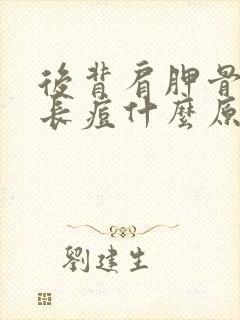 後背肩胛骨
長痘什麼原
劉建生